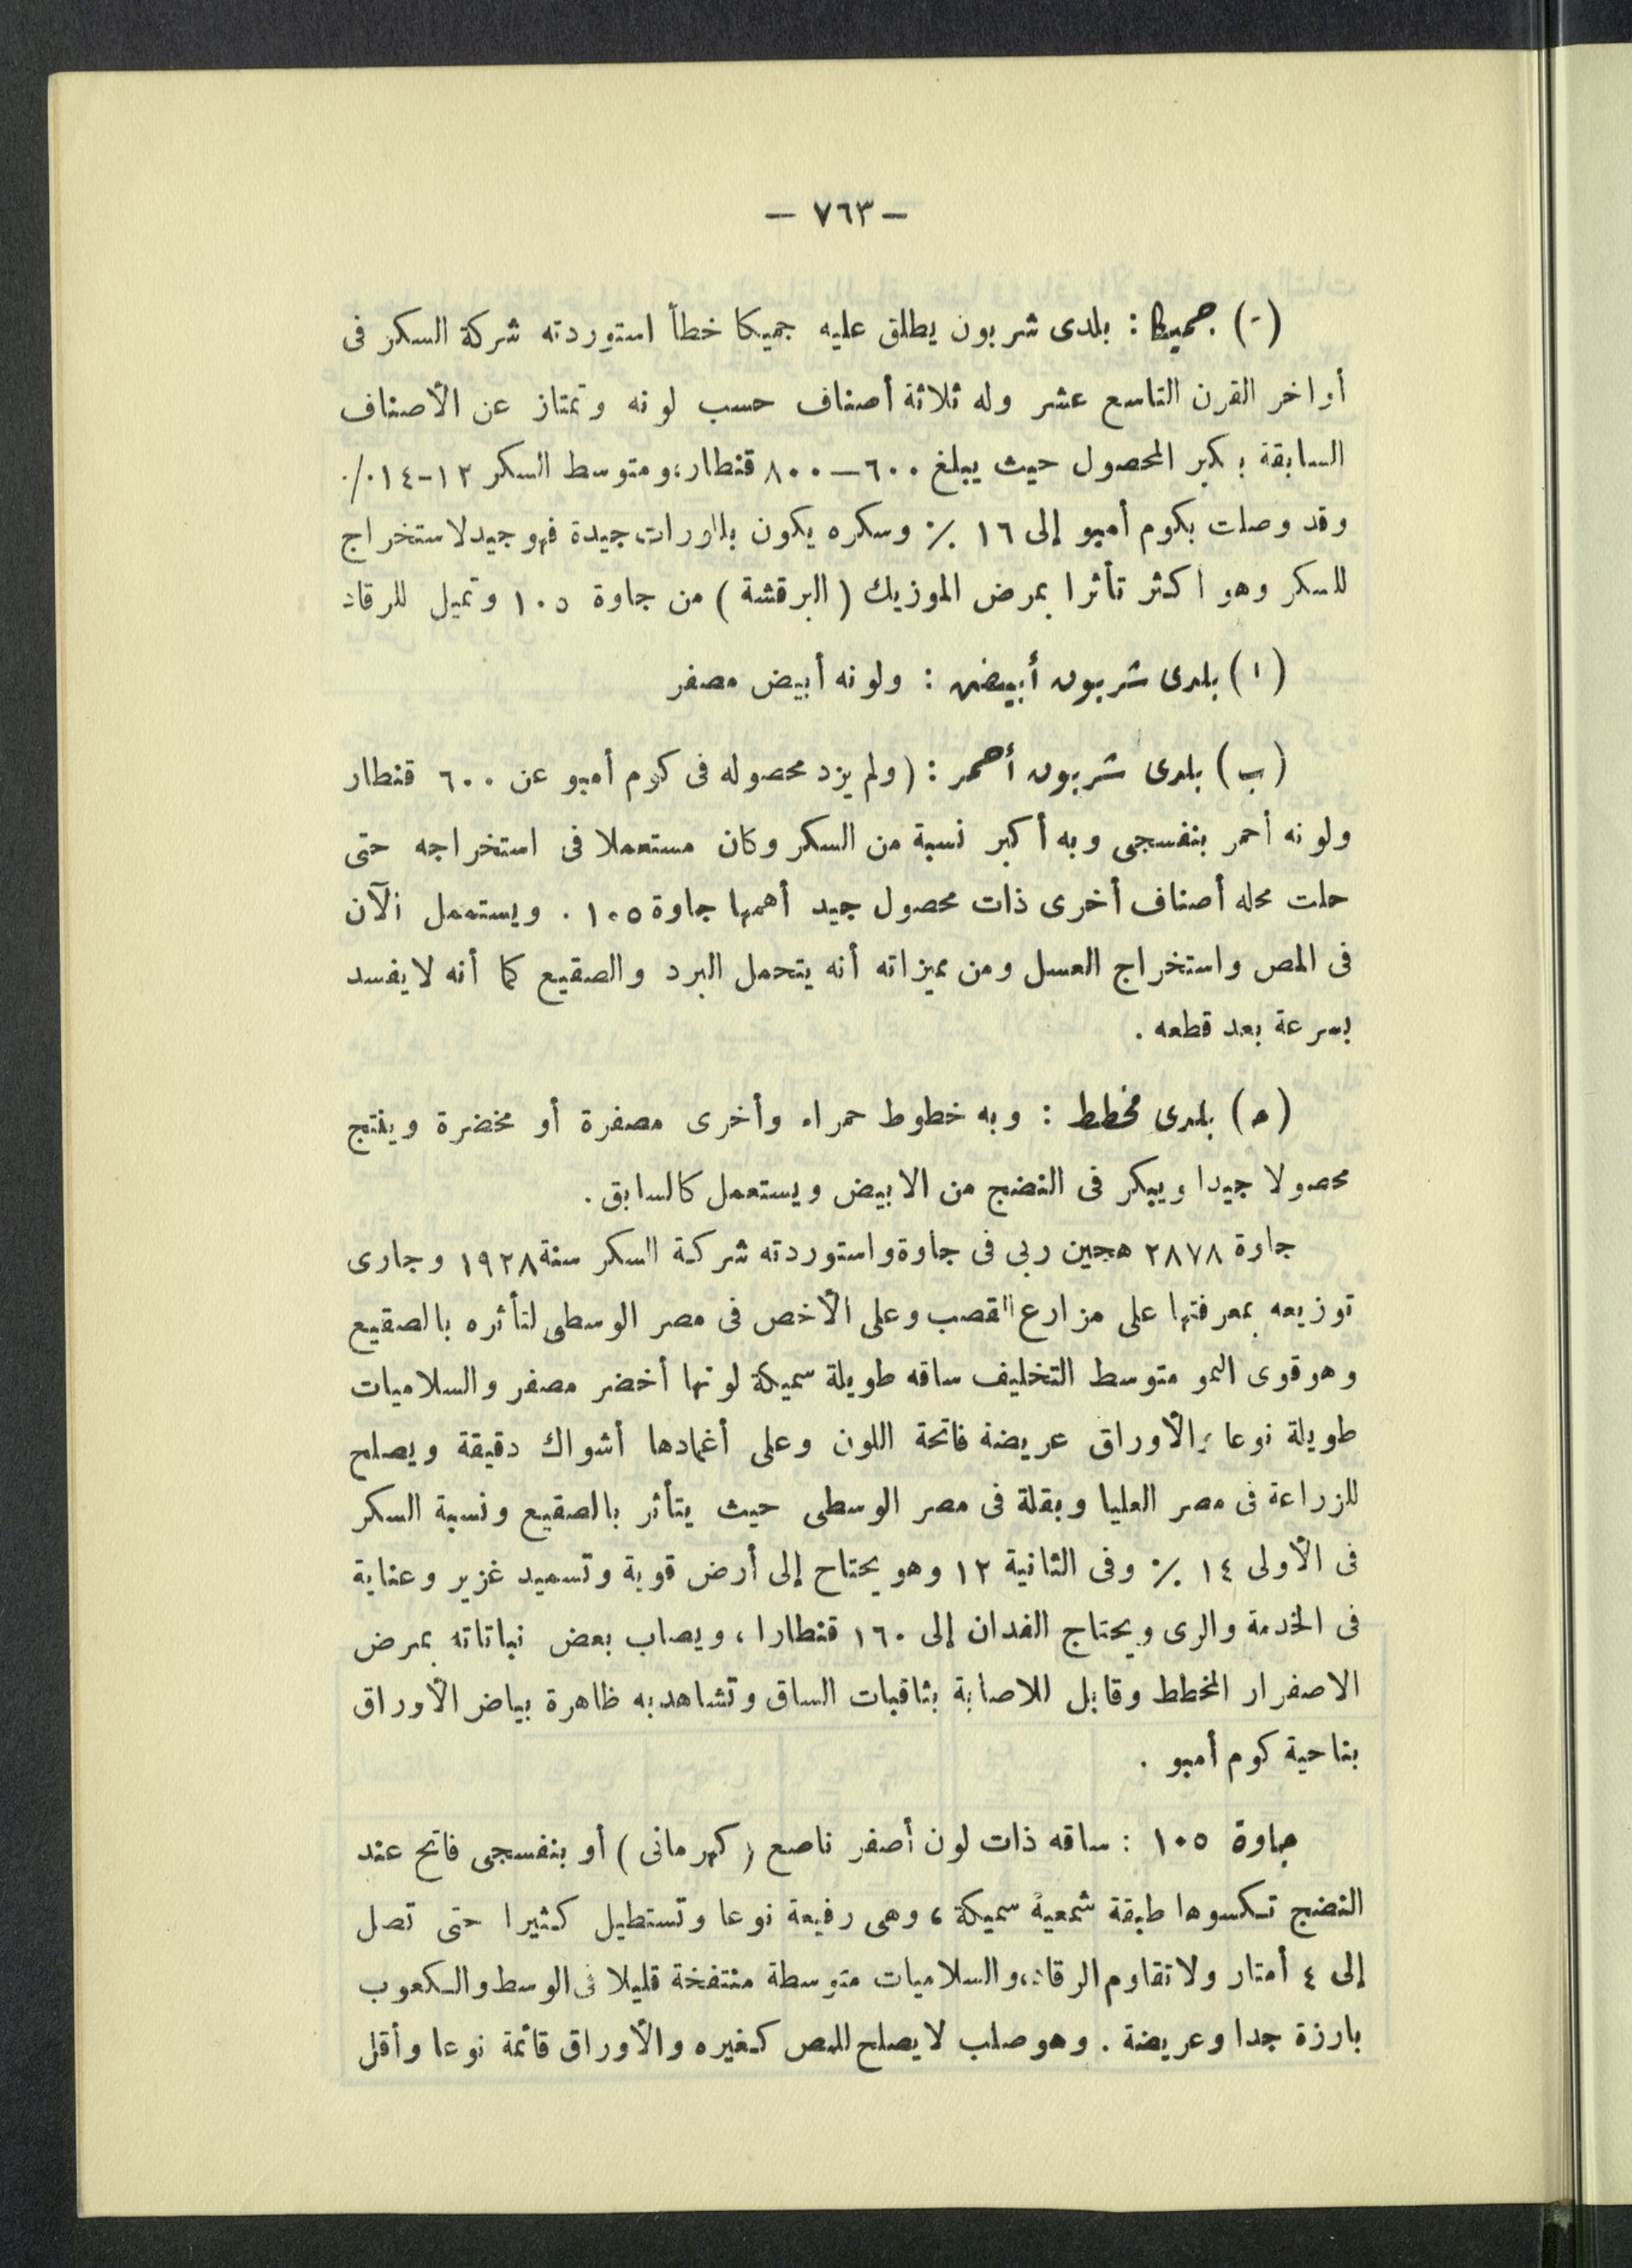 — ٧٦٣ —
(-) جميكا : بلدى شربون يطلق عليه جميكا خطأ استوردته شركة السكر فى
أواخر القرن التاسع عشر وله ثلاثة أصناف حسب لونه وتمتاز عن الأصناف
السابقة بكبر المحصول حيث يبلغ ٦٠٠—٨٠٠ قنطار، ومتوسط السكر ١٢-١٤٪
وقد وصلت بكوم أمبو إلى ١٦ ٪ وسكره يكون بللورات جيدة فهو جيد لاستخراج
للسكر وهو اكثر تأثرا بمرض الموزيك ( البرقشة ) من جاوة ١٠٥ وتميل للرقاد
( ا ) بلدى شربون أبيض : ولونه أبيض مصفر
(ب) بلدى شربون أحمر : ( ولم يزد محصوله فى كوم أمبو عن ٦٠٠ قنطار
ولونه أحمر بنفسجى وبه أكبر نسبة من السكر وكان مستعملا فى استخراجه حتى
حلت محله أصناف أخرى ذات محصول جيد أهمها جاوة ١٠٥ . ويستعمل الآن
فى المص واستخراج العسل ومن مميزاته أنه يتحمل البرد والصقيع كما أنه لا يفسد
بسرعة بعد قطعه .
(ح) بلدى مخطط : وبه خطوط حمراء وأخرى مصفرة أو مخضرة وينتج
محصولا جيدا ويبكر فى النضج من الابيض ويستعمل كالسابق .
جاوة ٢٨٧٨ هجين ربى فى جاوة واستوردته شركة السكر سنة ١٩٢٨ وجارى
توزيعه بمعرفتها على مزارع القصب وعلى الأخص فى مصر الوسطى لتأثره بالصقيع
وهو قوى النمو متوسط التخليف ساقه طويلة سميكة لونها أخضر مصفر والسلاميات
طويلة نوعا والأوراق عريضة فاتحة اللون وعلى أغمادها أشواك دقيقة ويصلح
للزراعة فى مصر العليا وبقلة فى مصر الوسطى حيث يتأثر بالصقيع ونسبة السكر
فى الأولى ١٤ ٪ وفى الثانية ١٢ وهو يحتاج إلى أرض قوية وتسميد غزير وعناية
فى الخدمة والرى ويحتاج الفدان إلى ١٦٠ قنطارا ، ويصاب بعض نباتاته بمرض
الاصفرار المخطط وقابل للاصابة بثاقبات الساق وتشاهد به ظاهرة بياض الأوراق
بناحية كوم أمبو .
جاوة ١٠٥ : ساقه ذات لون أصفر ناصع ( كهرمانى ) أو بنفسجى فاتح عند
النضج تكسوها طبقة شمعية سميكة ، وهى رفيعة نوعا وتستطيل كثيرا حتى تصل
إلى ٤ أمتار ولا تقاوم الرقاد، والسلاميات متوسطة منتفخة قليلا فى الوسط والكعوب
بارزة جدا وعريضة . وهو صلب لا يصلح للمص كغيره والأوراق قائمة نوعا وأقل